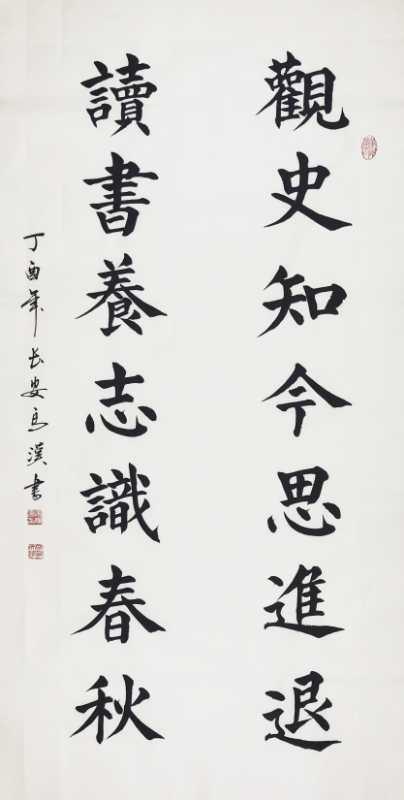 觀史知今思進退
讀書養志識春秋
丁酉年长安马漢书